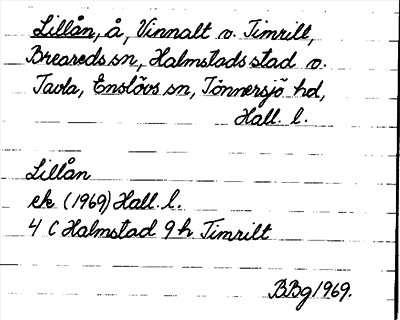 Lillån, å, Vinnalt o. Timrilt,
Breareds sn, Halmstads stad o.
Tavla, Enslövs sn, Tönnersjö hd,
Hall. l.
Lillån
ek (1969) Hall. l.
4 C Halmstad 9 h Timrilt
BBg 1969.